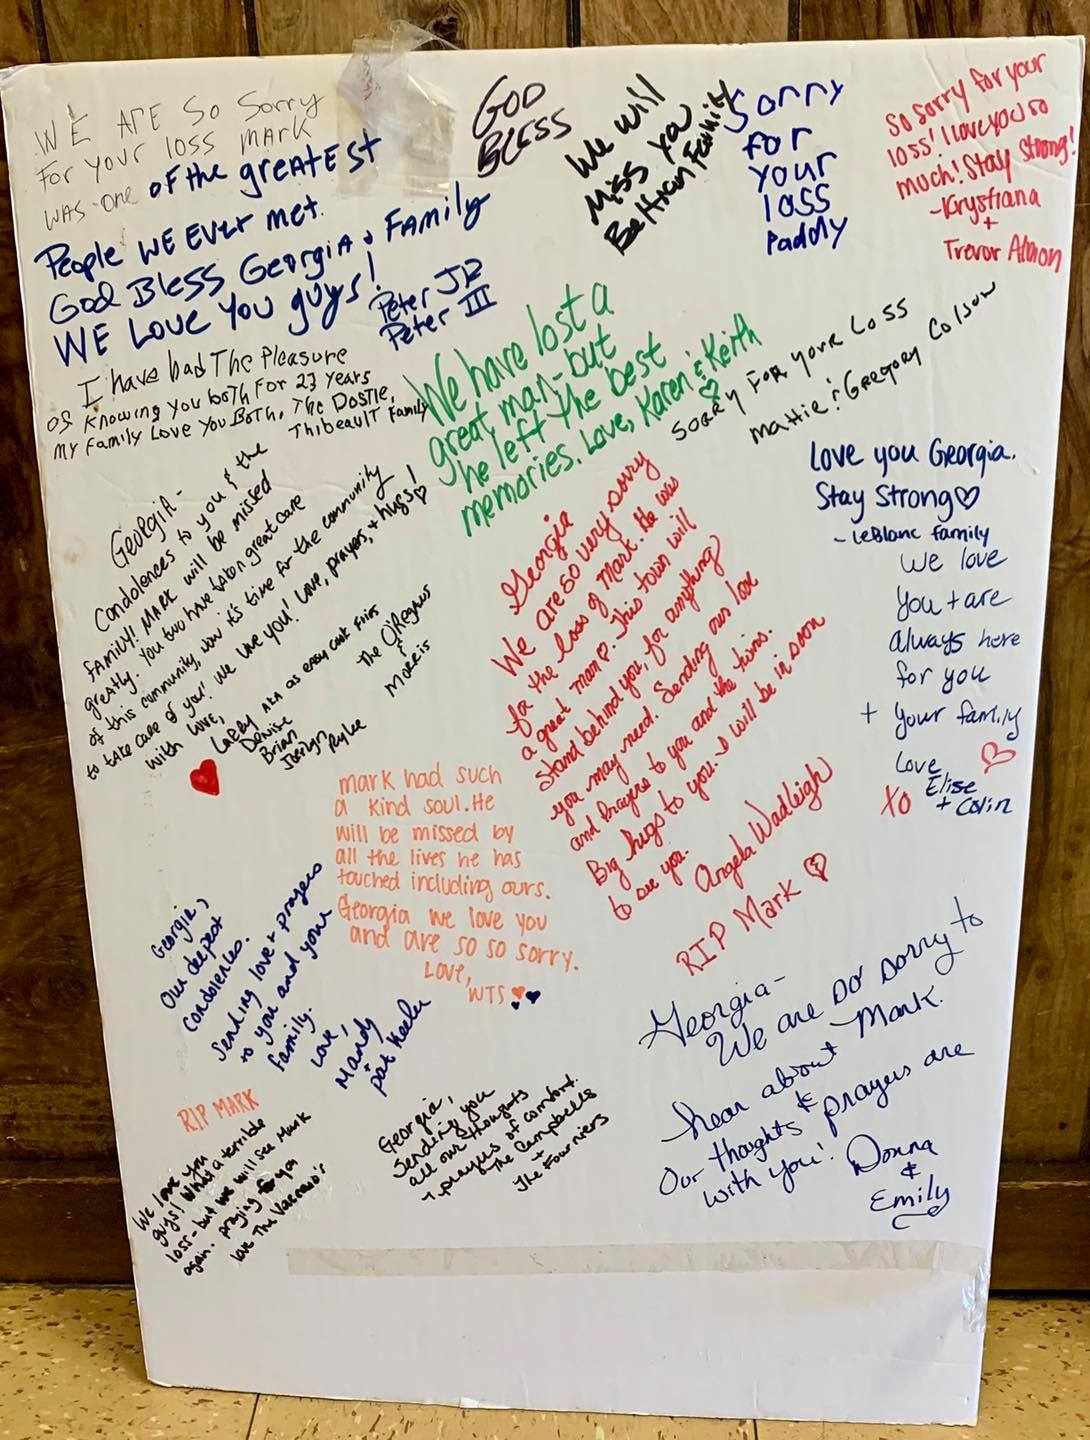 WE ARE SO Sorry
For your loss MARK
WAS one OF the greatEST
People WE EVER met.
God Bless Georgia & Family
WE Love You guys!
Peter JR
Peter III
GOD
BLESS
We will
Miss Ya
Beltran Family
Sorry
for
your
loss
Paddy
So sorry for your
loss! I love you so
much! Stay strong!
-Krystiana
+
Trevor
I have had The Pleasure
of knowing you both For 23 years
my Family Love You Both, The Dostie,
Thibeault Family
We have lost a
great man-but
he left the best
memories. Love, Karen & Keith
SORRY FOR YOUR LOSS
Mattie & Gregory Colson
Love you Georgia.
Stay Strong♡
- LeBlanc family
We love
you + are
always here
for you
+ your family
Love
XO
Elise
+ Colin
Georgia -
Condolences to you & the
FAMILY! MARK will be missed
greatly. You two have taken great care
of this community, now it's time for the community
to take care of you! We love you! Love, prayers, + hugs!♡
With Love,
Larry AKA as easy cook Fries
Denise
Brian
Jocelyn
Rylee
The O'Regans
Morris
Georgia
We are so very sorry
for the loss of Mark. He was
a great man♡. This town will
stand behind you, for anything
you may need. Sending our love
and prayers to you and the twins.
Big hugs to you. I will be in soon
to see you.
Angela Wadleigh
RIP Mark
mark had such
a kind soul. He
will be missed by
all the lives he has
touched including ours.
Georgia we love you
and are so so sorry.
Love,
WTS
Georgia,
Our deepest
Condolences.
Sending love + prayers
to you and your
family.
Love,
Mandy
+
Pat Keeler
Georgia -
We are so sorry to
hear about Mark.
Our thoughts &
prayers are
with you!
Donna
&
Emily
RIP MARK
We love you
guys! What a terrible
loss - but we will see Mark
again. praying for you
love The
Georgia,
Sending you
all our thoughts
+ prayers of comfort.
The Campbells
+
The Fourniers